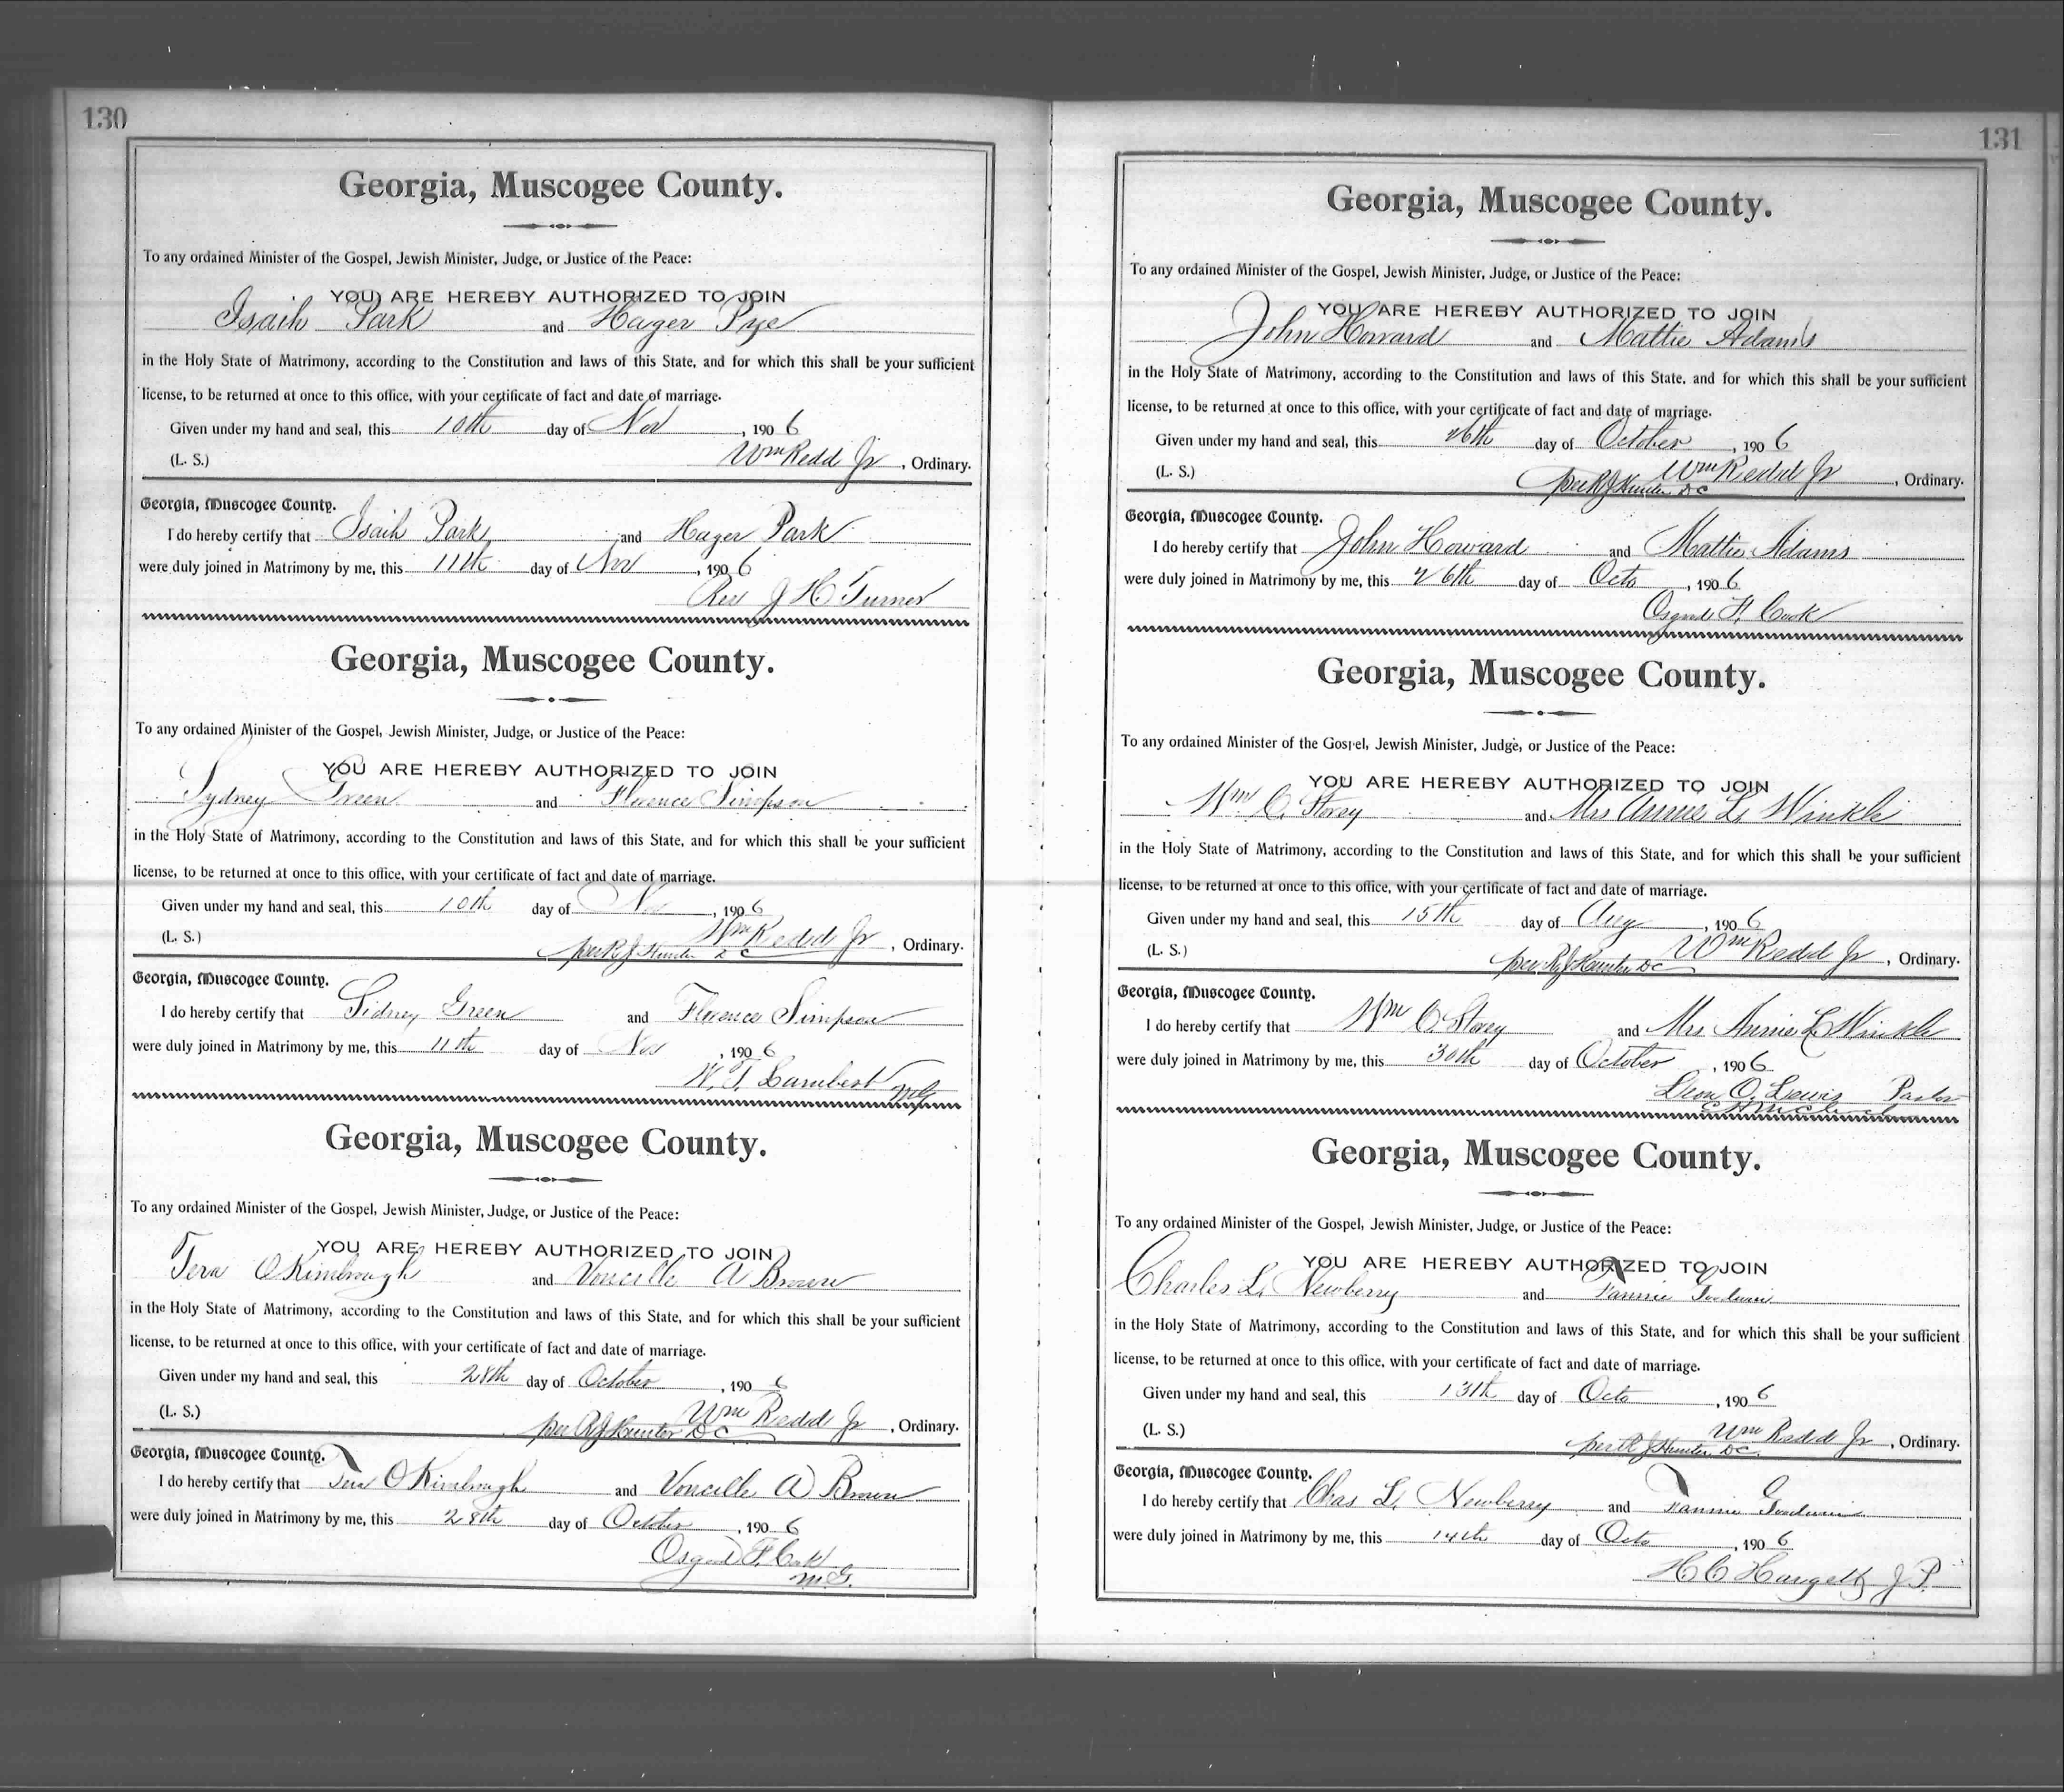 130
Georgia, Muscogee County.
To any ordained Minister of the Gospel, Jewish Minister, Judge, or Justice of the Peace:
YOU ARE HEREBY AUTHORIZED TO JOIN
Isaih Park and Hager Pye
in the Holy State of Matrimony, according to the Constitution and laws of this State, and for which this shall be your sufficient
license, to be returned at once to this office, with your certificate of fact and date of marriage.
Given under my hand and seal, this 10th day of Nov, 1906
(L. S.) Wm Redd Jr, Ordinary.
Georgia, Muscogee County.
I do hereby certify that Isaih Park and Hager Park
were duly joined in Matrimony by me, this 11th day of Nov, 1906
Rev J H Turner
Georgia, Muscogee County.
To any ordained Minister of the Gospel, Jewish Minister, Judge, or Justice of the Peace:
YOU ARE HEREBY AUTHORIZED TO JOIN
Sydney Green and Florence Simpson
in the Holy State of Matrimony, according to the Constitution and laws of this State, and for which this shall be your sufficient
license, to be returned at once to this office, with your certificate of fact and date of marriage.
Given under my hand and seal, this 10th day of Nov, 1906
(L. S.) Wm Redd Jr, Ordinary.
per R J Hunter D C
Georgia, Muscogee County.
I do hereby certify that Sidney Green and Florence Simpson
were duly joined in Matrimony by me, this 11th day of Nov, 1906
W. T. Lambert MG
Georgia, Muscogee County.
To any ordained Minister of the Gospel, Jewish Minister, Judge, or Justice of the Peace:
YOU ARE HEREBY AUTHORIZED TO JOIN
Tera O Kimbrough and Voncille A Brown
in the Holy State of Matrimony, according to the Constitution and laws of this State, and for which this shall be your sufficient
license, to be returned at once to this office, with your certificate of fact and date of marriage.
Given under my hand and seal, this 28th day of October, 1906
(L. S.) Wm Redd Jr, Ordinary.
per R J Hunter D C
Georgia, Muscogee County.
I do hereby certify that Tera O Kimbrough and Voncille A Brown
were duly joined in Matrimony by me, this 28th day of October, 1906
Osgood F. Cook
M.G.
131
Georgia, Muscogee County.
To any ordained Minister of the Gospel, Jewish Minister, Judge, or Justice of the Peace:
YOU ARE HEREBY AUTHORIZED TO JOIN
John Howard and Mattie Adams
in the Holy State of Matrimony, according to the Constitution and laws of this State, and for which this shall be your sufficient
license, to be returned at once to this office, with your certificate of fact and date of marriage.
Given under my hand and seal, this 26th day of October, 1906
(L. S.) Wm Redd Jr, Ordinary.
per R J Hunter D C
Georgia, Muscogee County.
I do hereby certify that John Howard and Mattie Adams
were duly joined in Matrimony by me, this 26th day of Octo, 1906
Osgood F. Cook
Georgia, Muscogee County.
To any ordained Minister of the Gospel, Jewish Minister, Judge, or Justice of the Peace:
YOU ARE HEREBY AUTHORIZED TO JOIN
Wm C. Storey and Mrs Annie L. Winkle
in the Holy State of Matrimony, according to the Constitution and laws of this State, and for which this shall be your sufficient
license, to be returned at once to this office, with your certificate of fact and date of marriage.
Given under my hand and seal, this 15th day of Aug, 1906
(L. S.) Wm Redd Jr, Ordinary.
per R J Hunter D C
Georgia, Muscogee County.
I do hereby certify that Wm C. Storey and Mrs Annie L Winkle
were duly joined in Matrimony by me, this 30th day of October, 1906
Leon O. Lewis Pastor
Georgia, Muscogee County.
To any ordained Minister of the Gospel, Jewish Minister, Judge, or Justice of the Peace:
YOU ARE HEREBY AUTHORIZED TO JOIN
Charles L. Newberry and Fannie Goodwin
in the Holy State of Matrimony, according to the Constitution and laws of this State, and for which this shall be your sufficient
license, to be returned at once to this office, with your certificate of fact and date of marriage.
Given under my hand and seal, this 13th day of Octo, 1906
(L. S.) Wm Redd Jr, Ordinary.
per R J Hunter D C
Georgia, Muscogee County.
I do hereby certify that Chas L. Newberry and Fannie Goodwin
were duly joined in Matrimony by me, this 14th day of Octo, 1906
H C Hargett J P.